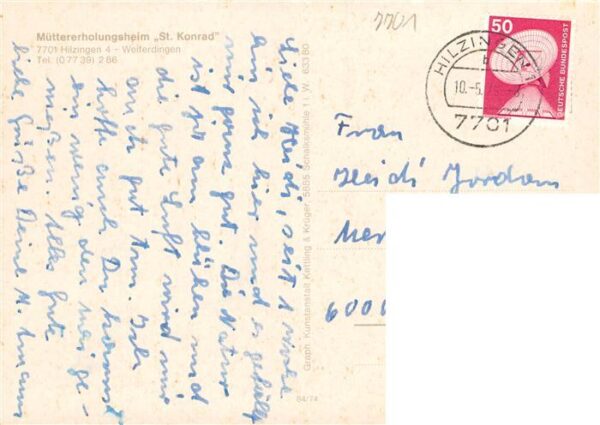 Müttererholungsheim „St. Konrad"
7701 Hilzingen 4 - Weiterdingen
Tel. (0 77 39) 2 86
7701
50
DEUTSCHE BUNDESPOST
HILZINGEN
b
10.-5.
7701
Liebe Heidi, seit 1 Woche
bin ich hier und es gefällt
mir ganz gut. Die Natur
ist so am blühen und
die gute Luft wird mir
auch gut tun. Ich
hoffe auch Du kannst
ein wenig den
genießen. Alles Gute
liebe Grüße Deine
Graph. Kunstanstalt Kettling & Krüger, 5885 Schalksmühle 1 I. W. 633 80
84/74
Frau
Heidi Jordan
600